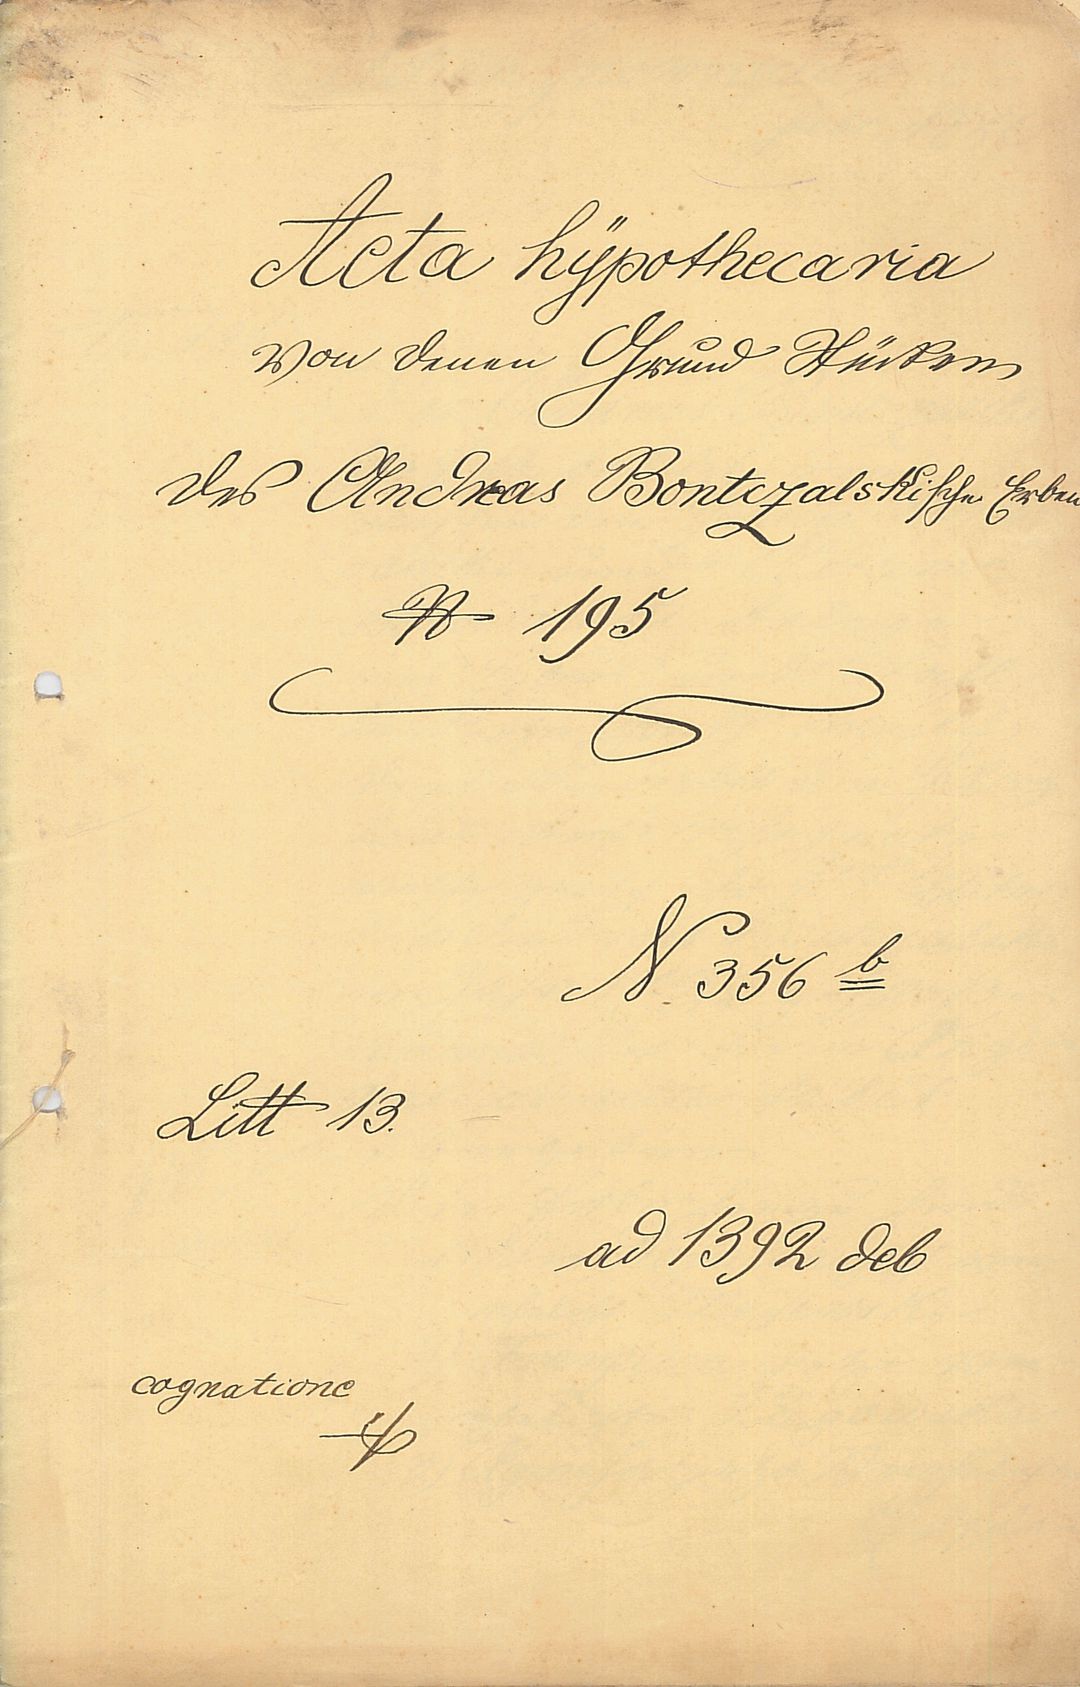 Acta hÿpothecaria
von denen Grund Stücken
des Andreas Bontczalskische Erben
N 195
N. 356 b
Litt 13.
ad 1392 deb
cognatione